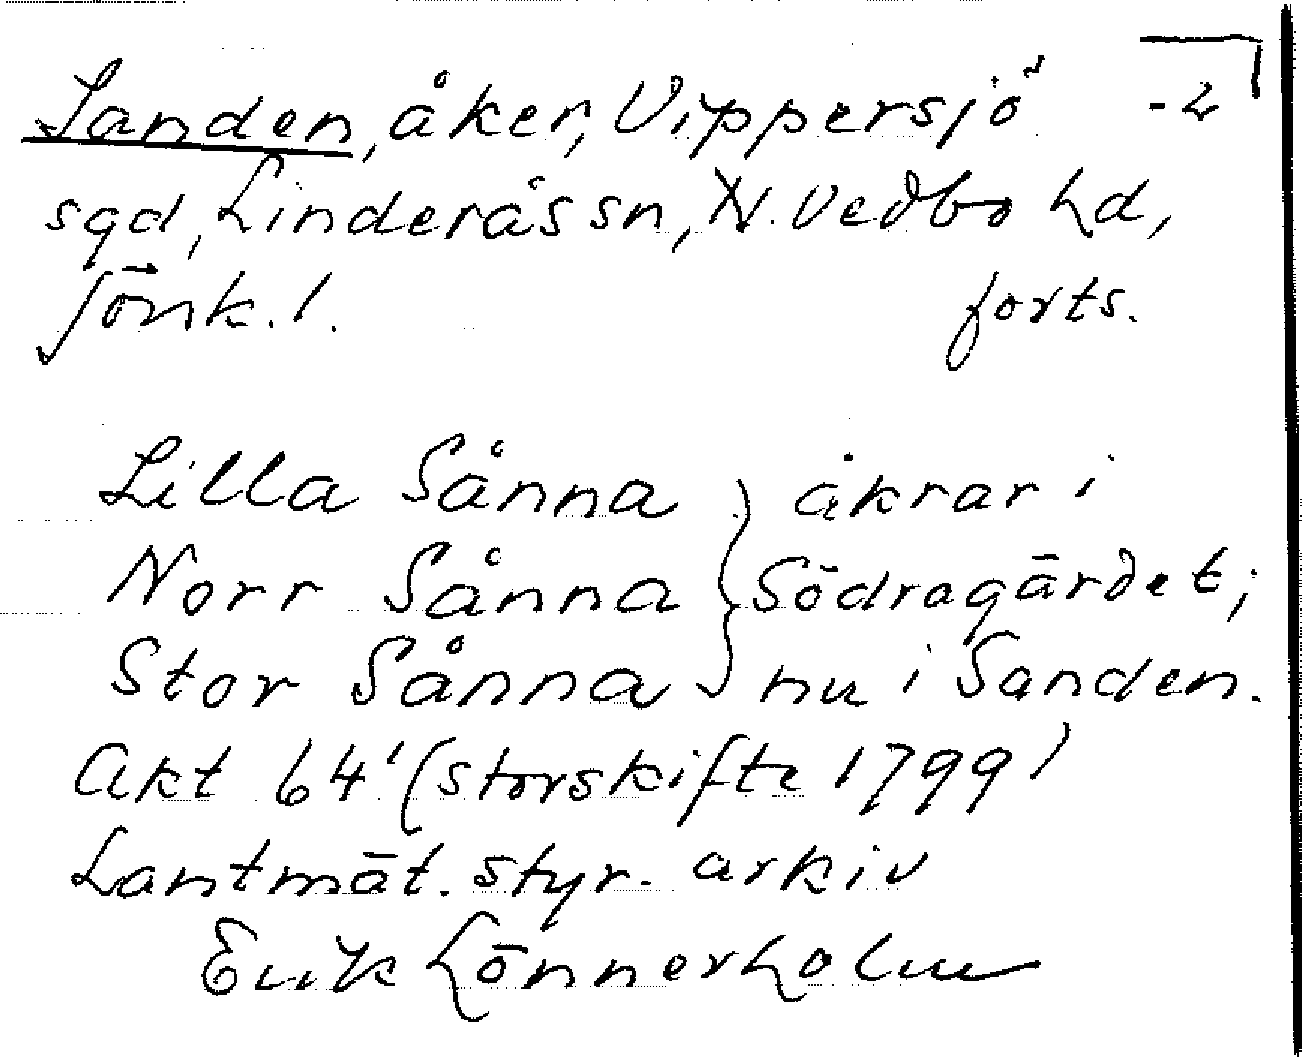 Sanden, åker, Vippersjö -2
sgd, Linderås sn, N. Vedbo hd,
Jönk. l. forts.
Lilla Sånna } åkrar i
Norr Sånna } Södragärdet;
Stor Sånna } nu i Sanden.
Akt 64' (storskifte 1799)
Lantmät. styr. arkiv
Erik Lönnerholm